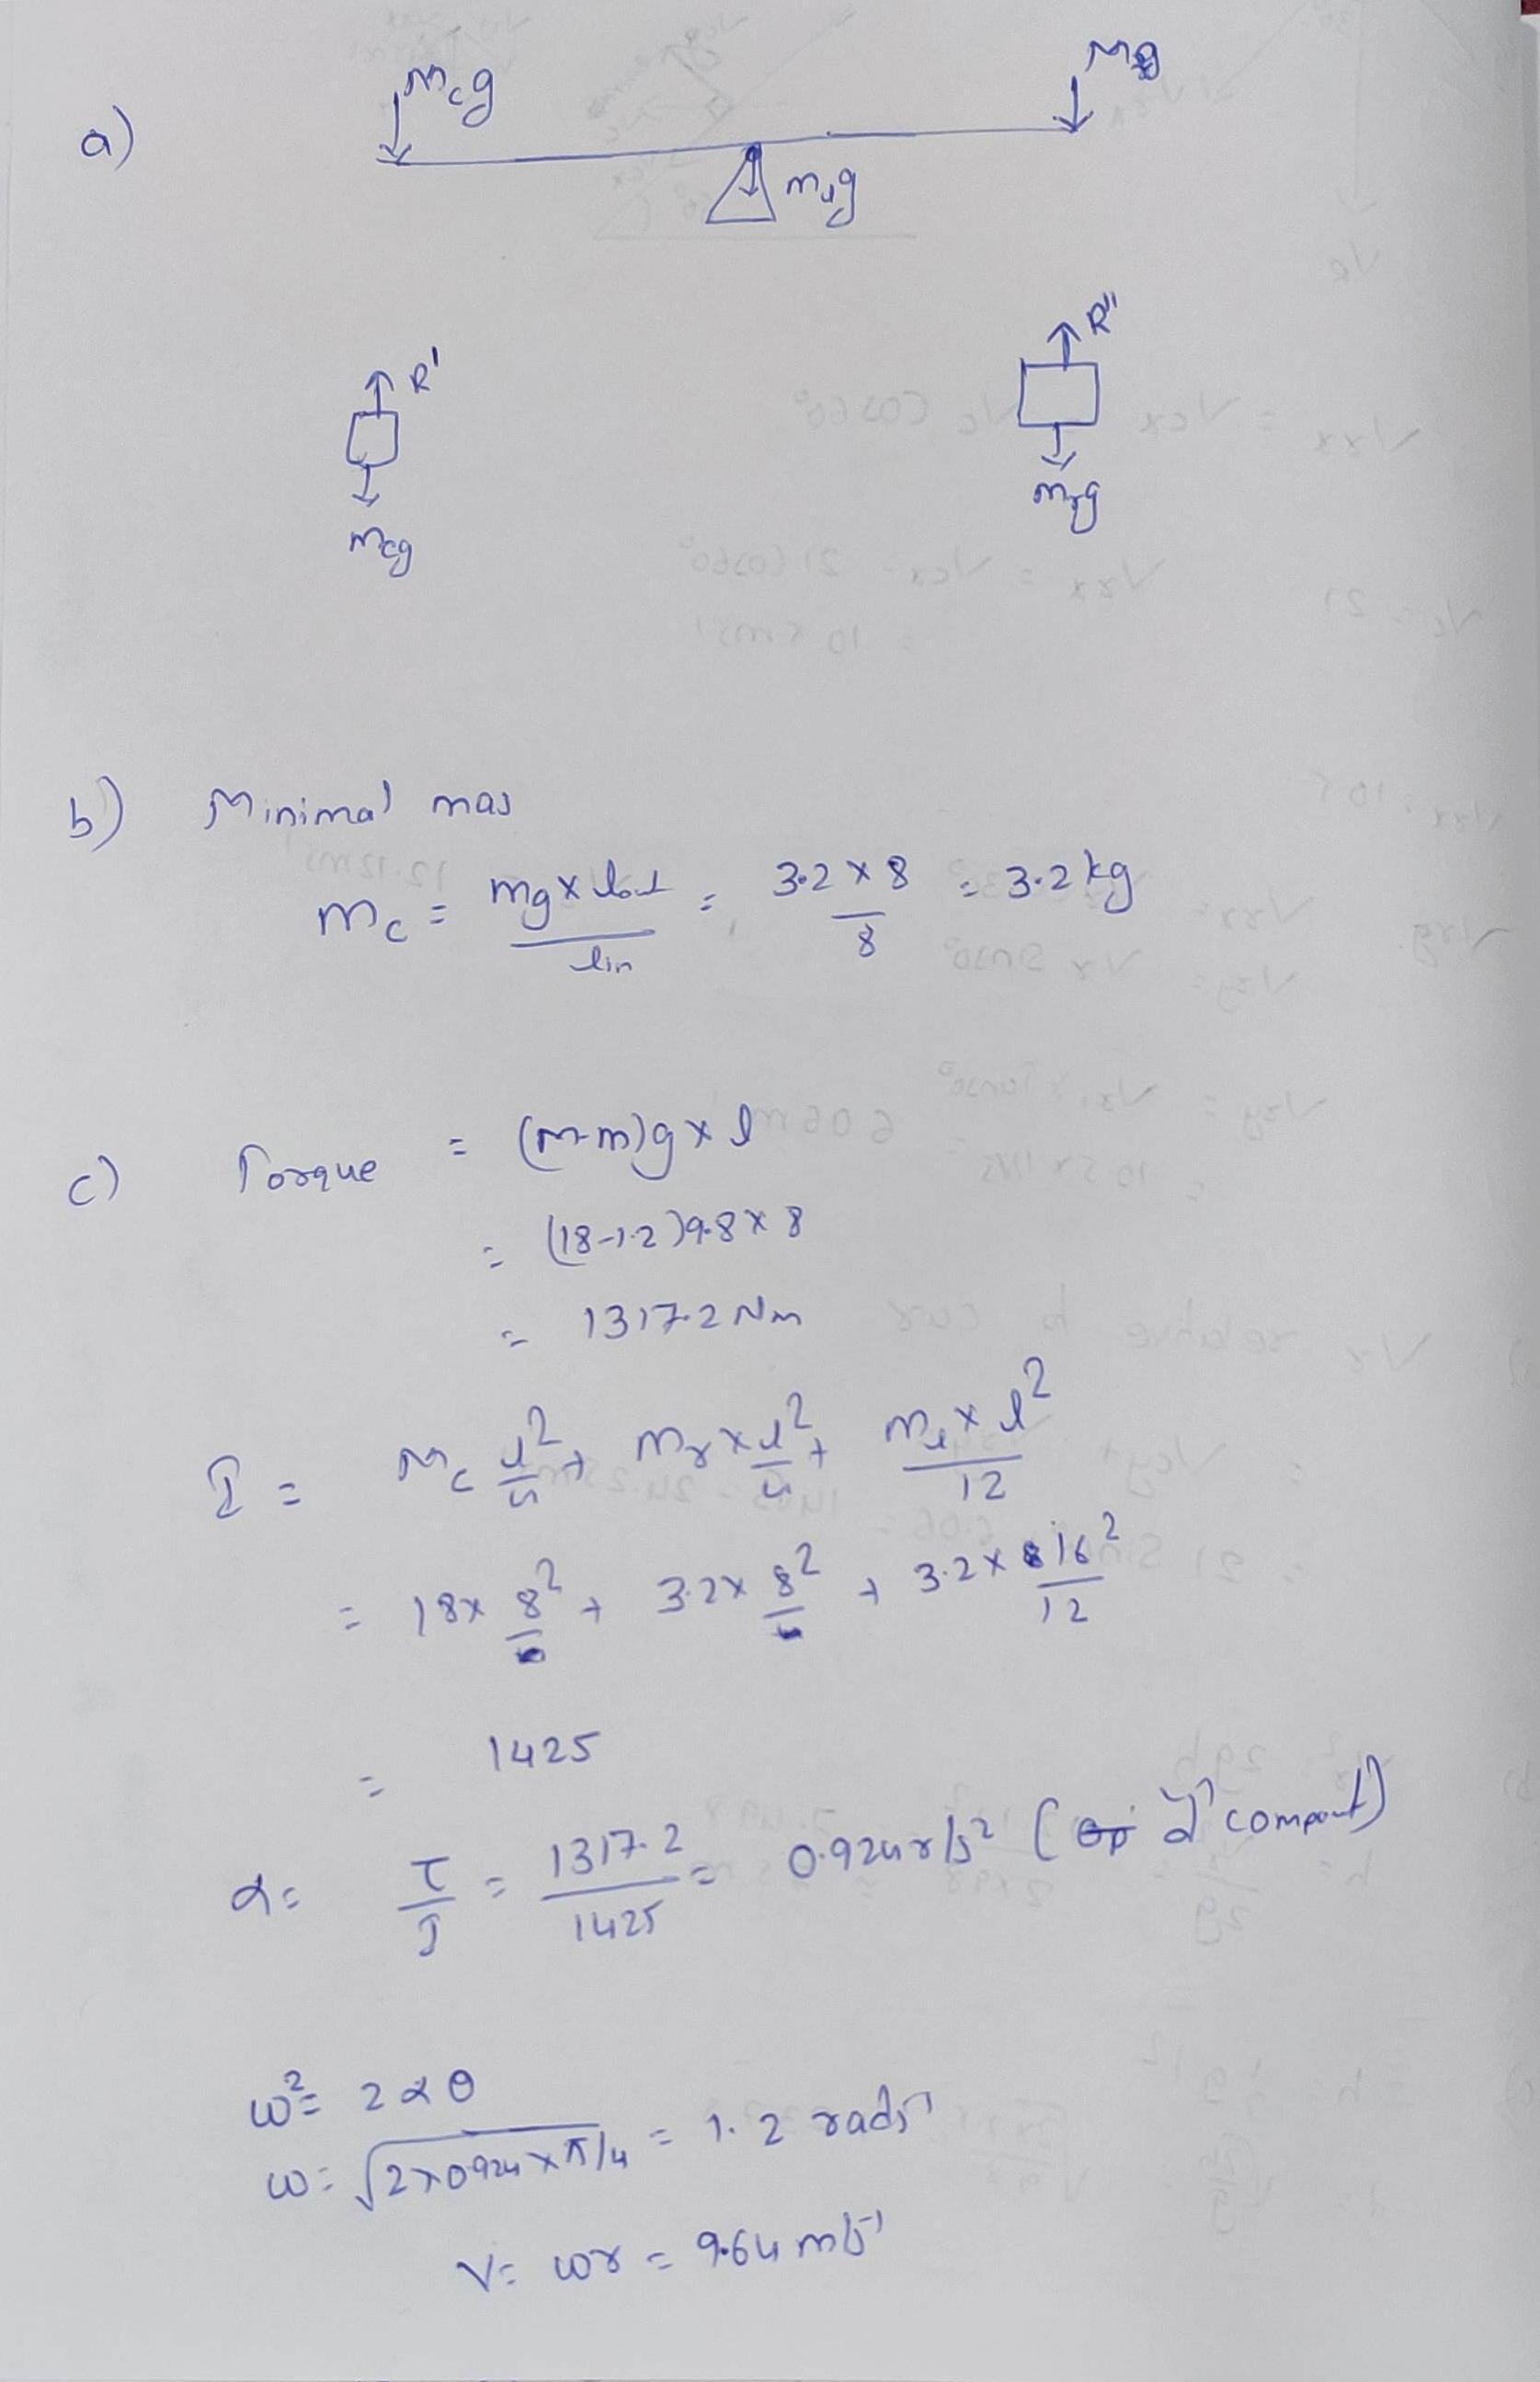 a)
mcg
mg
mug
R'
R"
mcg
mrg
b) Minimal mas
mc = mg x lout / lin = 3.2 x 8 / 8 = 3.2 kg
c) Torque = (m-m)g x l
= (18-1.2)9.8 x 8
= 1317.2 Nm
I = mc l²/4 + mr x l²/4 + ml x l² / 12
= 18 x 8² + 3.2 x 8² + 3.2 x 16² / 12
= 1425
α = τ/I = 1317.2 / 1425 = 0.924 r/s²
ω² = 2αθ
ω = √2x0.924xπ/4 = 1.2 rads⁻¹
V = ωr = 9.64 ms⁻¹